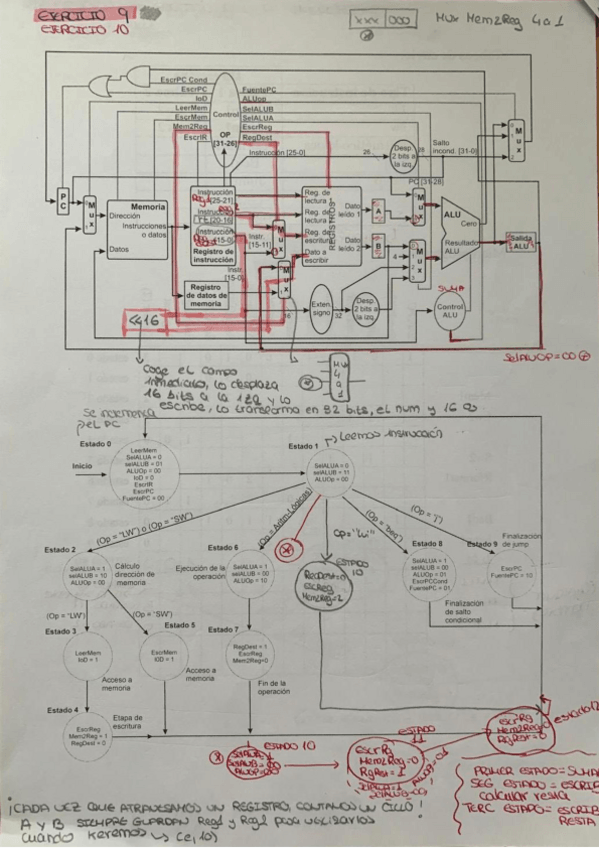 EJERCICIO 9
EJERCICIO 10
xxx 000
Mux Mem2Reg 4 a 1
EscrPC Cond
EscrPC
IoD
LeerMem
EscrMem
Mem2Reg
EscrIR
Control
OP
[31-26]
FuentePC
ALUop
SelALUB
SelALUA
EscrReg
RegDest
Instrucción [25-0]
26
Desp.
2 bits a
la izq
28
Salto
incond. [31-0]
PC [31-28]
Mux
PC
Mux
Memoria
Dirección
Instrucciones
o datos
Datos
Instrucción
[25-21]
Instrucción
[20-16]
Instrucción
[15-0]
Registro de
instrucción
Instr.
[15-11]
Instr.
[15-0]
Registro
de datos de
memoria
Mux
Mux
Reg. de
lectura 1
Reg. de
lectura 2
Reg. de
escritura
Dato a
escribir
REGISTROS
Dato
leído 1
Dato
leído 2
A
B
Mux
4
Mux
ALU
Cero
Resultado
ALU
Salida
ALU
SUMA
Control
ALU
<<16
16
Exten.
signo
32
Desp.
2 bits a
la izq
SelALUOP=00
Coge el campo
inmediato, lo desplaza
16 bits a la izq y lo
escribe, lo transforma en 32 bits, el num y 16 0s
MUX
4
a
1
Se incrementa
el PC
Estado 0
Inicio
LeerMem
SelALUA = 0
selALUB = 01
ALUOp = 00
IoD = 0
EscrIR
EscrPC
FuentePC = 00
Estado 1
Leemos instrucción
SelALUA = 0
selALUB = 11
ALUOp = 00
(Op = "LW") o (Op = "SW")
(Op = Aritm-Lógicas)
Op="lui"
(Op = "beq")
(Op = "j")
Estado 2
SelALUA = 1
selALUB = 10
ALUOp = 00
Cálculo
dirección de
memoria
Estado 6
Ejecución de la
operación
SelALUA = 1
selALUB = 00
ALUOp = 10
ESTADO
10
RegDest=0
EscrReg
Mem2Reg=2
Estado 8
SelALUA = 1
selALUB = 00
ALUOp = 01
EscrPCCond
FuentePC = 01
Finalización
de salto
condicional
Estado 9
Finalización
de jump
EscrPC
FuentePC = 10
(Op = "LW")
(Op = "SW")
Estado 3
LeerMem
IoD = 1
Acceso a
memoria
Estado 5
EscrMem
IOD = 1
Acceso a
memoria
Estado 7
RegDest = 1
EscrReg
Mem2Reg=0
Fin de la
operación
Estado 4
EscrReg
Mem2Reg = 1
RegDest = 0
Etapa de
escritura
ESTADO 10
ESTADO
11
EscrRg
Mem2Reg=0
RgDest=1
PRIMER ESTADO = SUMA
SEG ESTADO = ESCRIB
calcular resta
TERC ESTADO = ESCRIB
RESTA
¡CADA VEZ QUE ATRAVESAMOS UN REGISTRO, CONTAMOS UN CICLO!
A y B SIEMPRE GUARDAN Reg1 y Reg2 para utilizarlos
cuando keremos